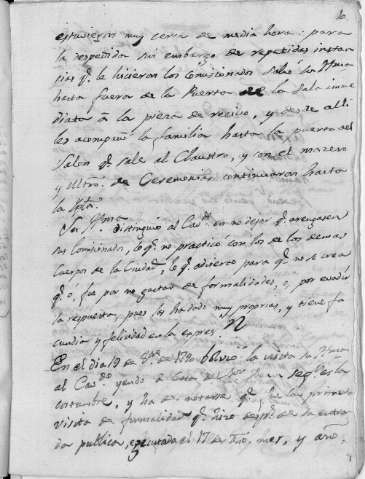 estuvieron muy cerca de media hora: para
la despedida sin embargo de repetidas instan
cias q.e le hicieron los Comisionados salió su Yllma
hasta fuera de la Puerta de la Sala inme
diata á la pieza de recivo, y desde alli
les acompañó la familia hasta la puerta del
Salon q.e sale al Claustro, y con el mazero
y Mtro. de Ceremonias continuaron hasta
la
Su Yllma distinguió al Cav.do en no dejar q.e
sus Comisionados, lo q.e no practicó con los de los demas
Cuerpos de la Ciudad, lo q.e advierto para q.e no se crea
q.e ó, fue por no gustar de formalidades, ó, por evadir
la respuesta, pues los ha dado muy proprias, y tiene fa
cundia y felicidad en la expres.n
En el dia 19 de de 1780 la visita su Yllma
al Cav.do yendo á Casa del S.or segun la
costumbre, y ha de notarse q.e fue la primera
visita de formalidad q.e hizo desp.s de la entra
da publica, egecutada el 17 de mes, y año.